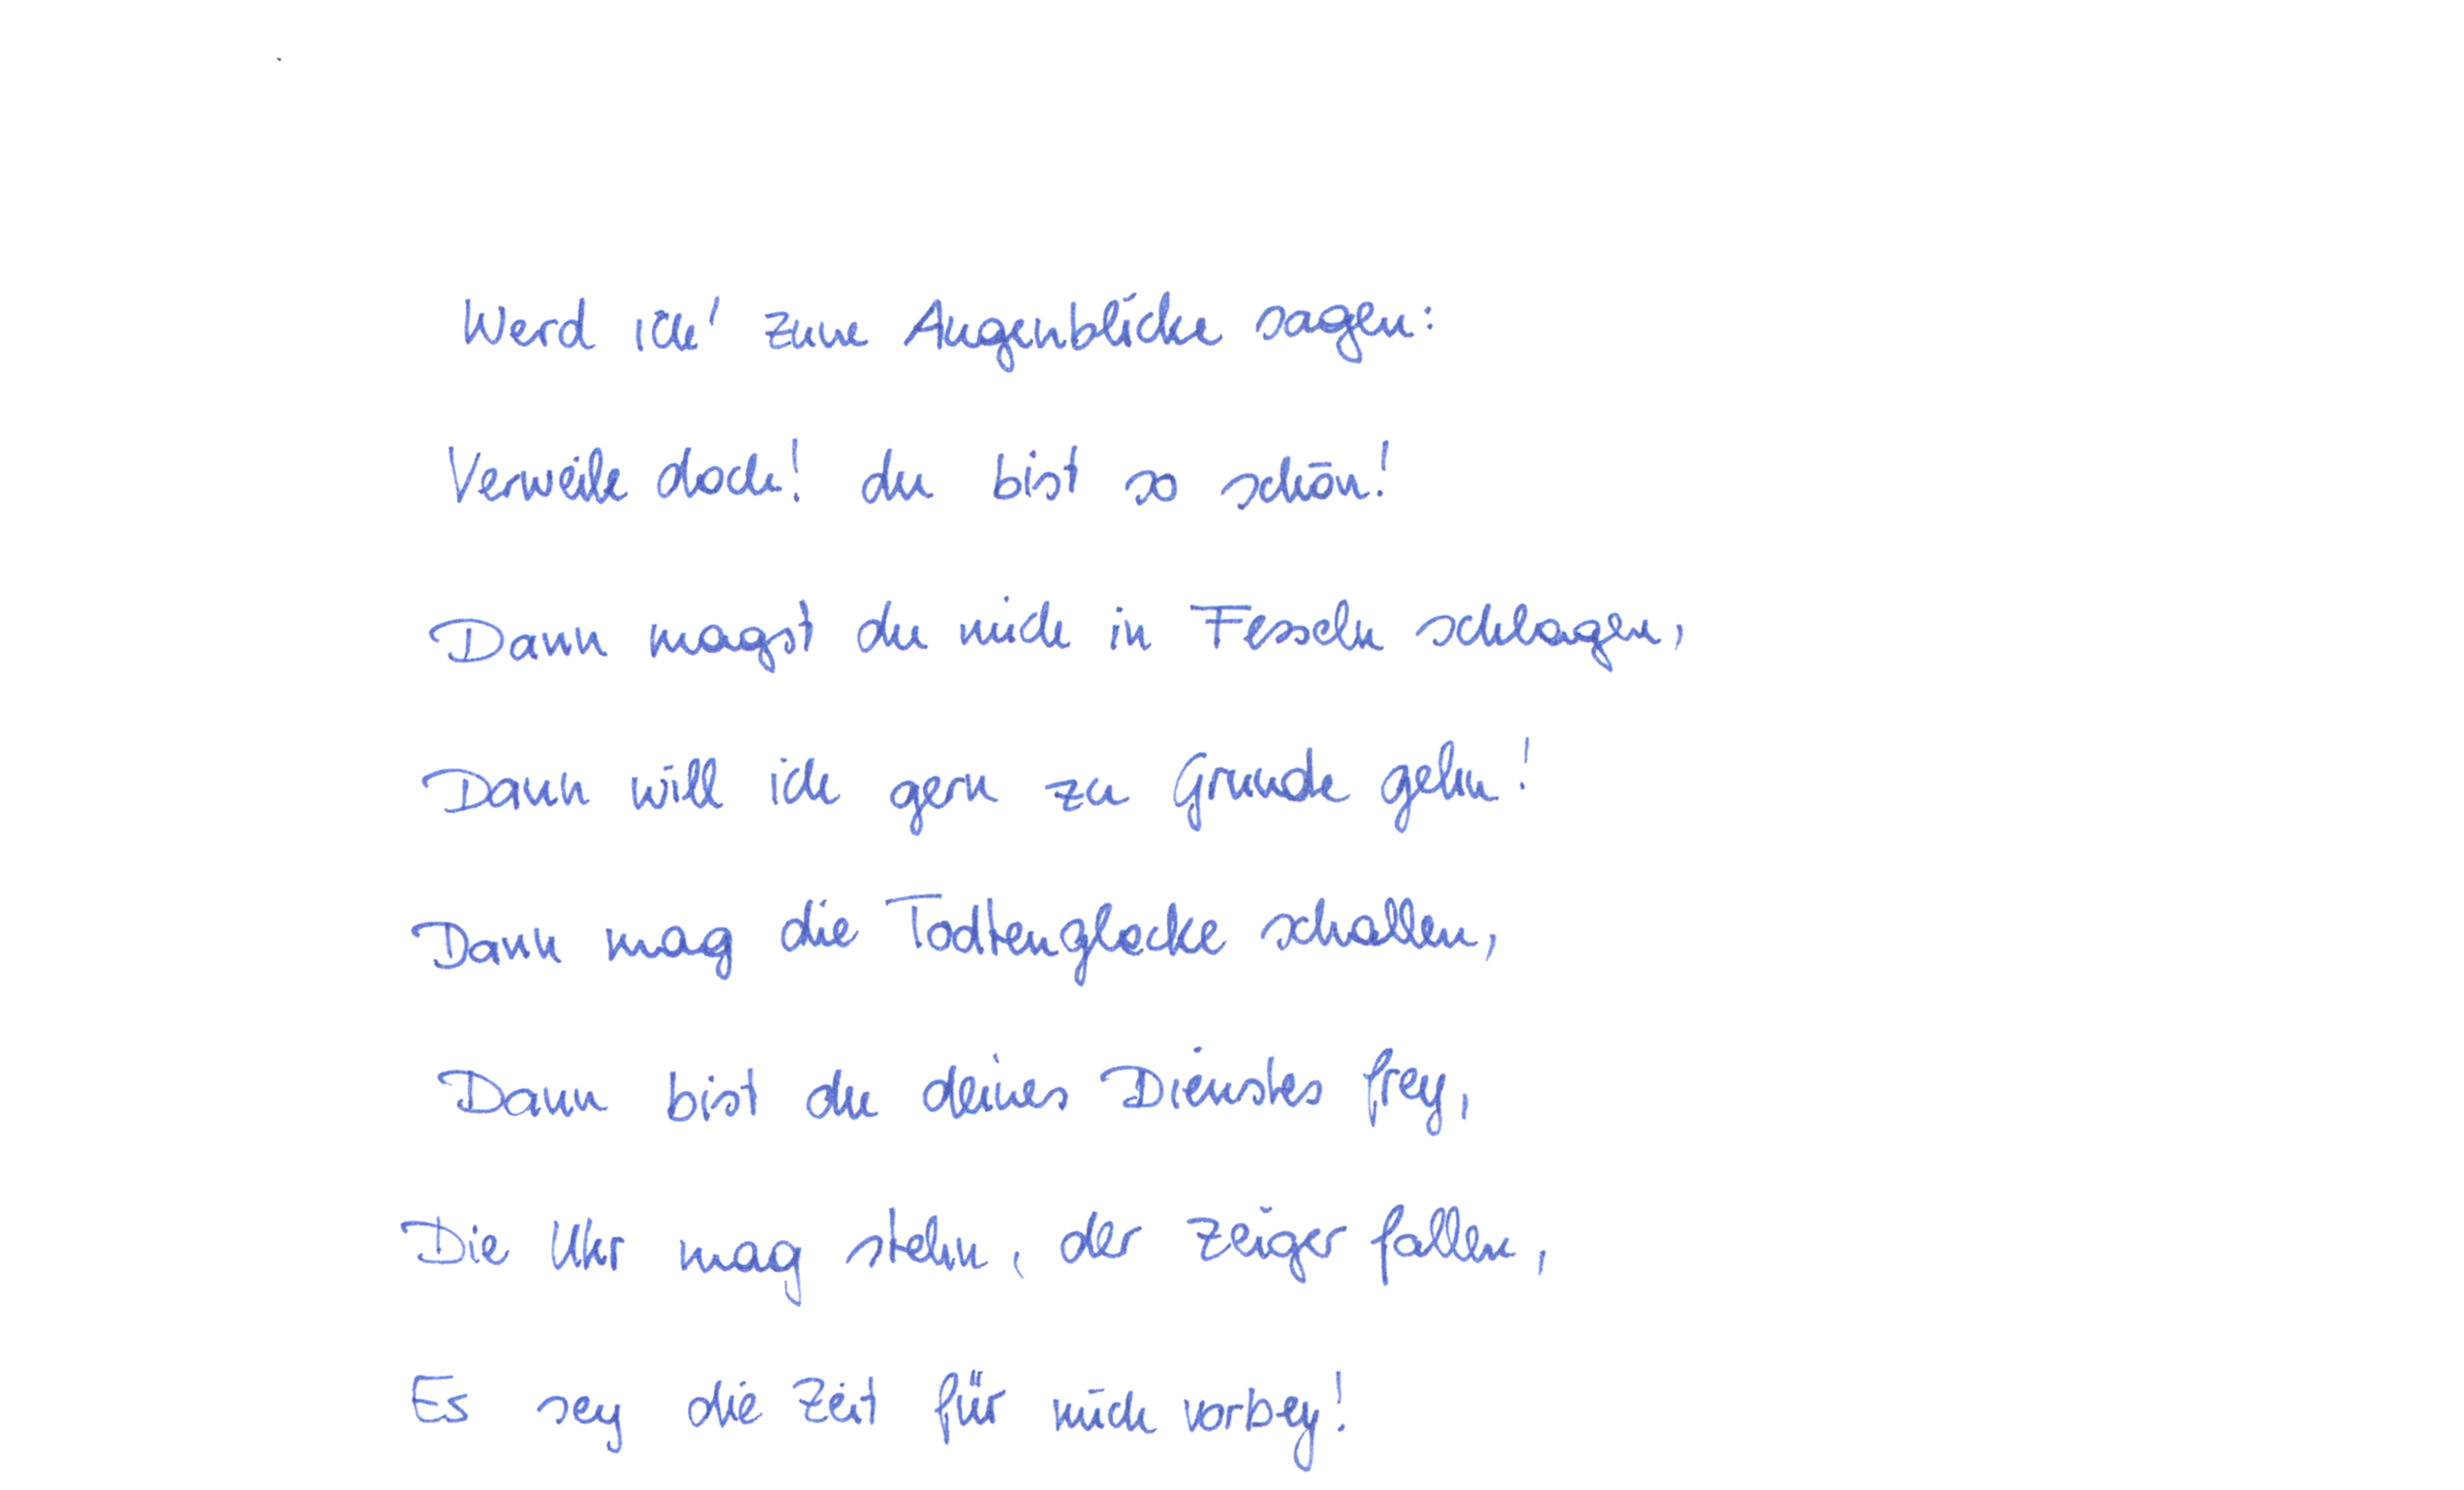 Werd ich' zum Augenblicke sagen:
Verweile doch! du bist so schön!
Dann magst du mich in Fesseln schlagen,
Dann will ich gern zu Grunde gehn!
Dann mag die Todtenglocke schallen,
Dann bist du deines Dienstes frey,
Die Uhr mag stehn, der Zeiger fallen,
Es sey die Zeit für mich vorbey!